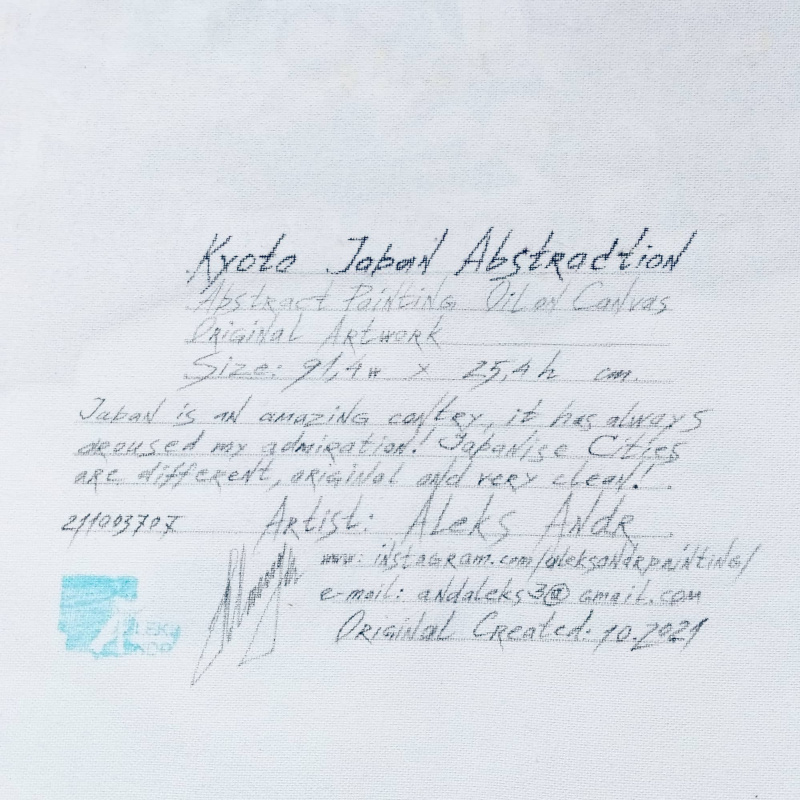 Kyoto Japan Abstraction
Abstract Painting Oil on Canvas
Original Artwork
Size: 91,4w x 25,4h cm.
Japan is an amazing contry, it has always
aroused my admiration! Japanise Cities
are different, original and very clean!
211003707 Artist: Aleks Andr
www: instagram.com/aleksandrpainting/
e-mail: andaleks3@gmail.com
Original Created: 10.2021
ALEKS
ANDR